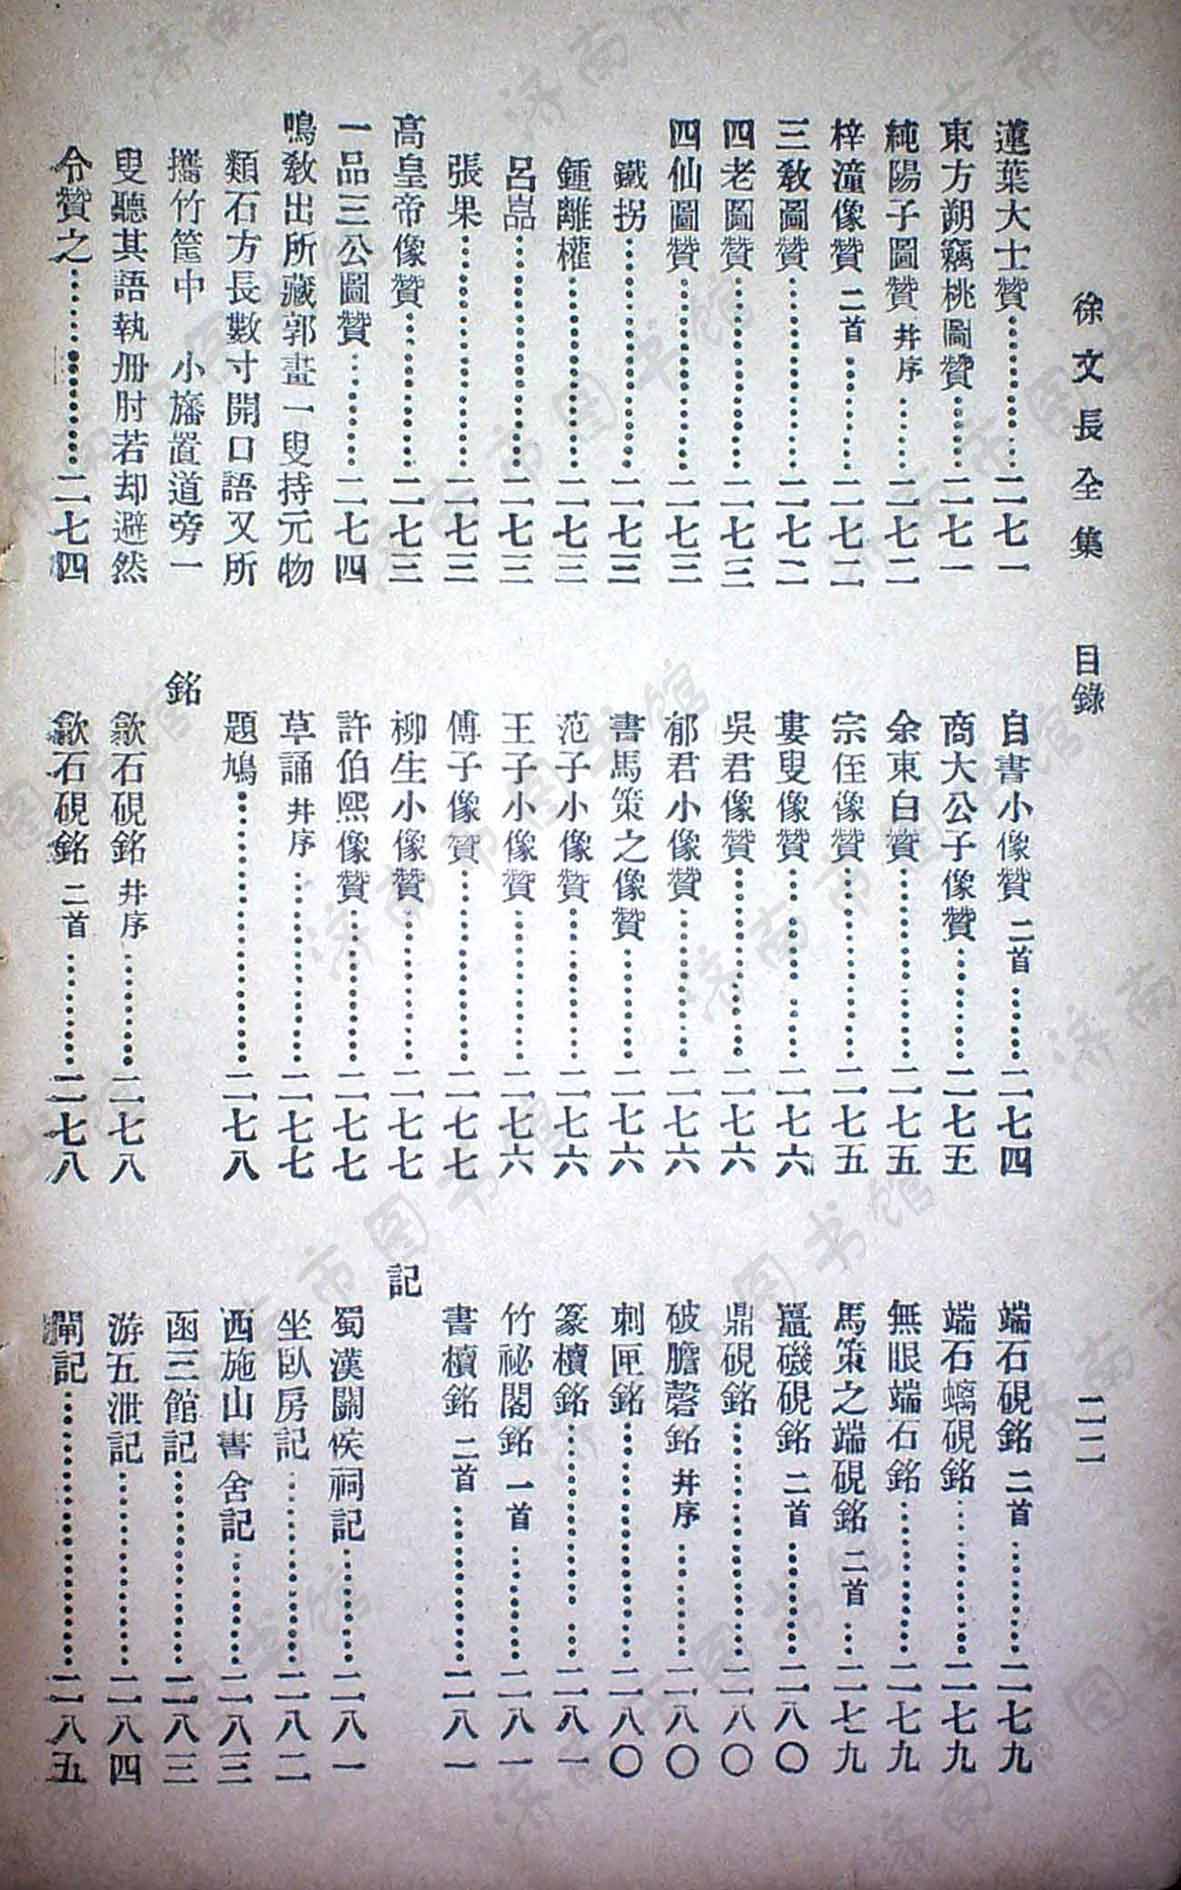 徐文長全集　目錄　二二
蓮葉大士贊…………二七一
東方朔竊桃圖贊…………二七一
純陽子圖贊 幷序…………二七二
梓潼像贊 二首…………二七二
三敎圖贊…………二七二
四老圖贊…………二七三
四仙圖贊…………二七三
鐵拐…………二七三
鍾離權…………二七三
呂嵓…………二七三
張果…………二七三
高皇帝像贊…………二七三
一品三公圖贊…………二七四
鳴敎出所藏郭畫一叟持元物
類石方長數寸開口語又所
攜竹筐中　小旛置道旁一
叟聽其語執册肘若却避然
令贊之…………二七四
自書小像贊 二首…………二七四
商大公子像贊…………二七五
余東白贊…………二七五
宗侄像贊…………二七五
婁叟像贊…………二七六
吳君像贊…………二七六
郁君小像贊…………二七六
書馬策之像贊…………二七六
范子小像贊…………二七六
王子小像贊…………二七六
傅子像贊…………二七七
柳生小像贊…………二七七
許伯熙像贊…………二七七
草誦 幷序…………二七七
題鳩…………二七八
銘
歙石硯銘 幷序…………二七八
歙石硯銘 二首…………二七八
端石硯銘 二首…………二七九
端石螭硯銘…………二七九
無眼端石銘…………二七九
馬策之端硯銘 二首…………二七九
鼉磯硯銘 二首…………二八〇
鼎硯銘…………二八〇
破膽磬銘 幷序…………二八〇
刺匣銘…………二八〇
篆櫝銘…………二八一
竹祕閣銘 一首…………二八一
書櫝銘 二首…………二八一
記
蜀漢關侯祠記…………二八一
坐臥房記…………二八二
西施山書舍記…………二八三
函三館記…………二八三
游五泄記…………二八四
閘記…………二八五
济南市图书馆